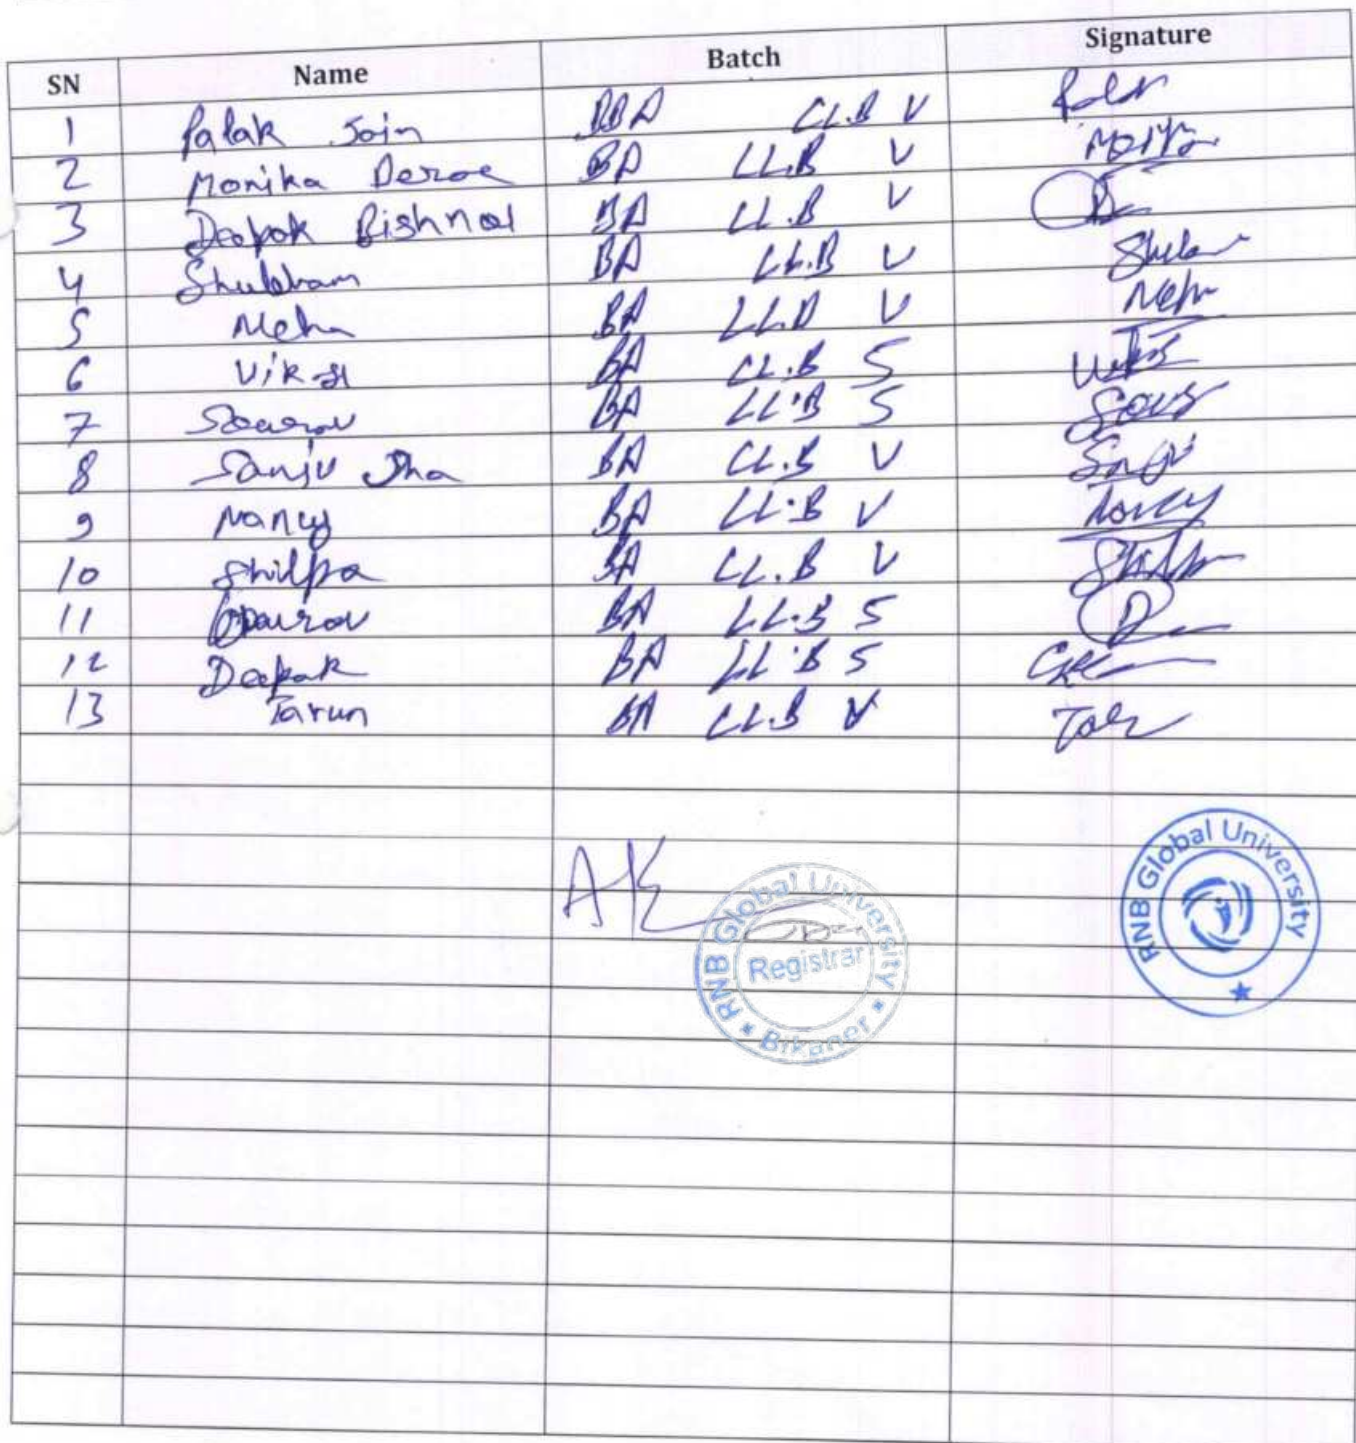 SN Name Batch Signature
1 Palak Jain BBA LL.B V
2 Monika BA LL.B V
3 Deepak Bishnoi BA LL.B V
4 Shubham BA LL.B V
5 Neha BA LL.B V Neha
6 Vikas BA LL.B 5
7 Sourav BA LL.B 5
8 Sanju Jha BA LL.B V Sanju
9 Nancy BA LL.B V Nancy
10 Shilpa BA LL.B V Shilpa
11 Gourav BA LL.B 5
12 Deepak BA LL.B 5
13 Tarun BA LL.B V
AK
RNB Global University
Registrar
Bikaner
RNB Global University